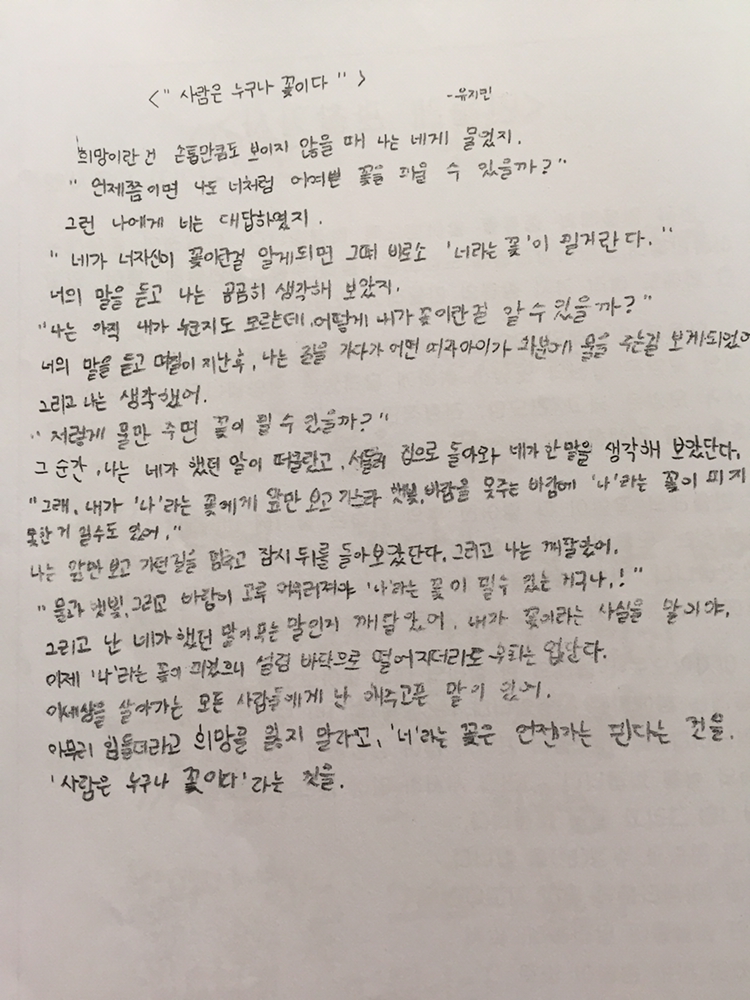 <" 사람은 누구나 꽃이다 ">
-유지민
희망이란 건 손톱만큼도 보이지 않을 때 나는 네게 물었지.
" 언제쯤이면 나도 너처럼 어여쁜 꽃을 피울 수 있을까?"
그런 나에게 너는 대답하였지.
" 네가 너자신이 꽃이란걸 알게되면 그때 비로소 '너라는 꽃'이 필거란다."
너의 말을 듣고 나는 곰곰히 생각해 보았지.
"나는 아직 내가 누군지도 모르는데, 어떻게 내가 꽃이란걸 알 수 있을까?"
너의 말을 듣고 며칠이 지난후, 나는 길을 가다가 어떤 여자아이가 화분에 물을 주는걸 보게되었어
그리고 나는 생각했어.
" 저렇게 물만 주면 꽃이 필 수 있을까?"
그 순간, 나는 네가 했던 말이 떠올랐고, 서둘러 집으로 돌아와 네가 한말을 생각해 보았단다.
"그래, 내가 '나'라는 꽃에게 앞만 보고 가느라 햇빛, 바람을 못주는 바람에 '나'라는 꽃이 피지
못한 거 일수도 있어."
나는 앞만 보고 가던길을 멈추고 잠시 뒤를 돌아보았단다. 그리고 나는 깨달았어.
" 물과 햇빛, 그리고 바람이 고루 어우러져야 '나'라는 꽃이 필수 있는 거구나.!"
그리고 난 네가 했던 말이 무슨 말인지 깨달았어. 내가 꽃이라는 사실을 말이야.
이제 '나'라는 꽃이 피었으니 설령 바닥으로 떨어지더라도 후회는 없단다.
이세상을 살아가는 모든 사람들에게 난 해주고픈 말이 있어.
아무리 힘들더라고 희망를 잃지 말라고, '너'라는 꽃은 언젠가는 핀다는 것을.
'사람은 누구나 꽃이다'라는 것을.